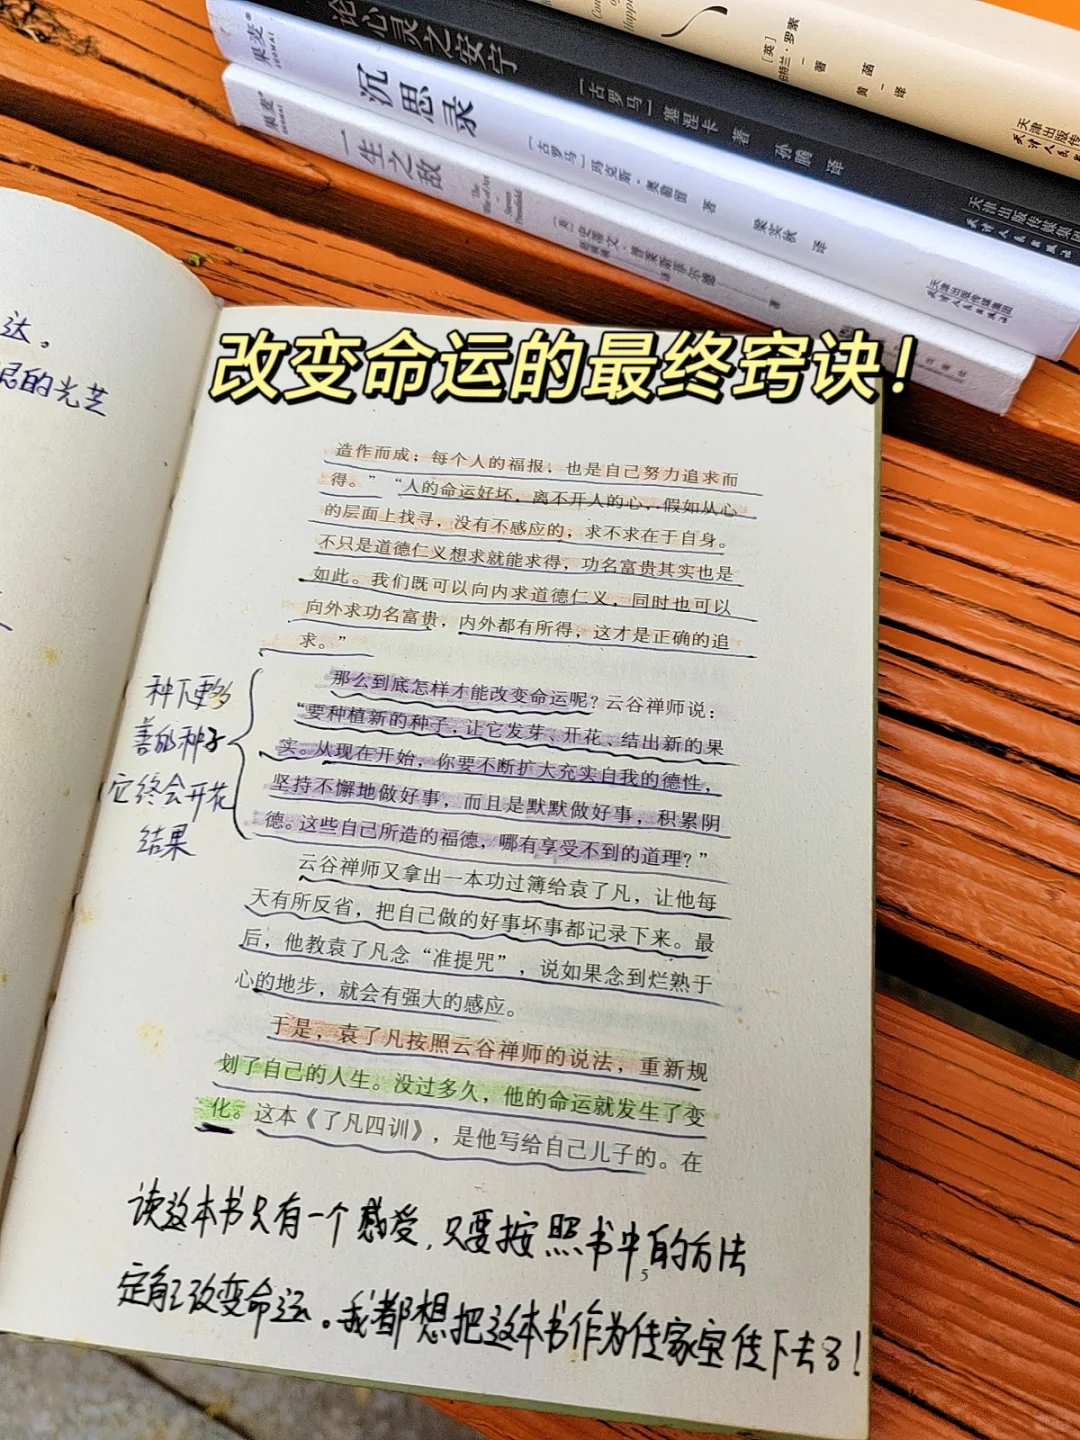 论心灵之安宁
[古罗马] 塞涅卡 著
孙腾 译
果麦
GUOMAI
沉思录
[古罗马] 玛克斯·奥勒留 著
梁实秋 译
天津出版传媒集团
天津人民出版社
果麦
一生之敌
The War of Art
Steven Pressfield
[英]
伯特兰·罗素 著
黄菡 译
达。
的光芒
改变命运的最终窍诀!
造作而成;每个人的福报,也是自己努力追求而
得。” “人的命运好坏,离不开人的心,假如从心
的层面上找寻,没有不感应的,求不求在于自身。
不只是道德仁义想求就能求得,功名富贵其实也是
如此。我们既可以向内求道德仁义,同时也可以
向外求功名富贵,内外都有所得,这才是正确的追
求。”
那么到底怎样才能改变命运呢?云谷禅师说:
“要种植新的种子,让它发芽、开花、结出新的果
实。从现在开始,你要不断扩大充实自我的德性,
坚持不懈地做好事,而且是默默做好事,积累阴
德。这些自己所造的福德,哪有享受不到的道理?”
种下更多
善的种子
它终会开花
结果
云谷禅师又拿出一本功过簿给袁了凡,让他每
天有所反省,把自己做的好事坏事都记录下来。最
后,他教袁了凡念“准提咒”,说如果念到烂熟于
心的地步,就会有强大的感应。
于是,袁了凡按照云谷禅师的说法,重新规
划了自己的人生。没过多久,他的命运就发生了变
化。这本《了凡四训》,是他写给自己儿子的。在
读这本书只有一个感受,只要按照书中的方法
5
定能改变命运。我都想把这本书作为传家宝传下去了!